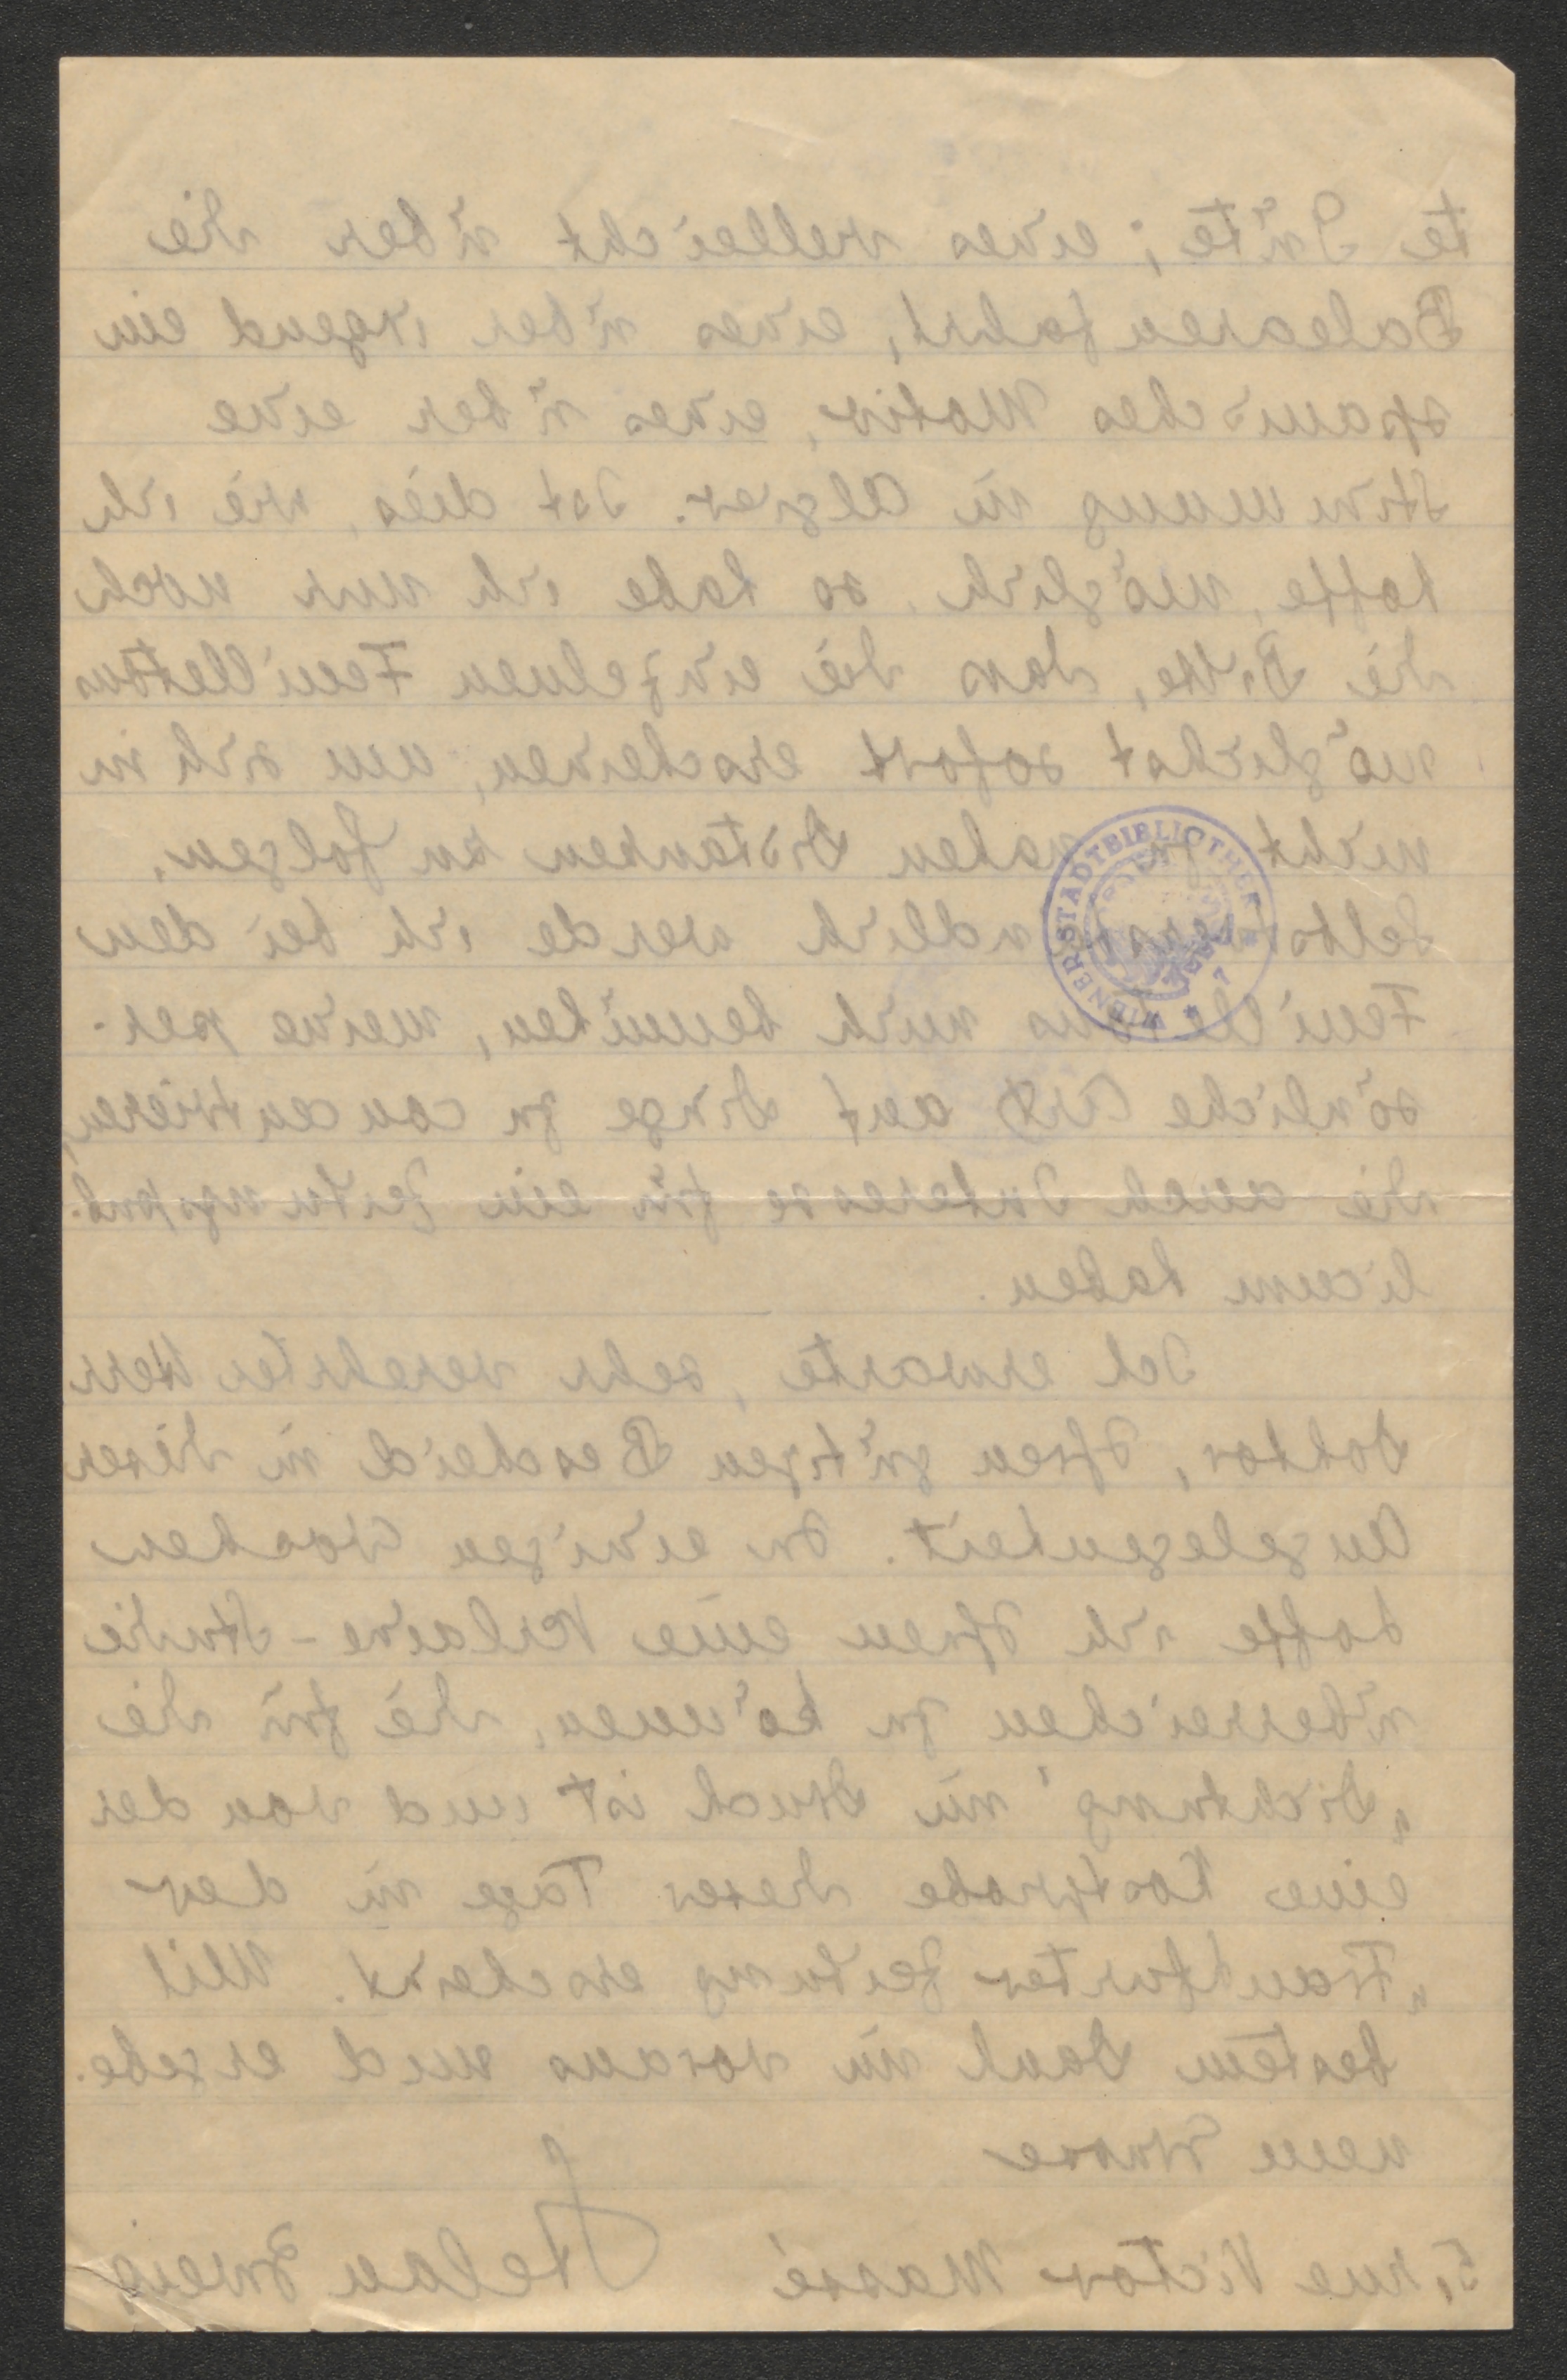 te Güte; eines vielleicht über die
Balearenfahrt, eines über irgend ein
spanisches Motiv, eines über eine
Stimmung in Algier. Ist dies, wie ich
hoffe, möglich, so habe ich nur noch
die Bitte, dass die einzelnen Feuilletons
möglichst sofort erscheinen, um sich in
nicht zu nahen Distanzen zu folgen.
Selbstverständlich werde ich bei den
Feuilletons mich bemühen, meine per-
sönliche Art auf Dinge zu concentrieren,
die auch Interesse für ein Zeitungspub-
licum haben.
Ich erwarte, sehr verehrter Herr
Doktor, Ihren gütigen Bescheid in dieser
Angelegenheit. In einigen Wochen
hoffe ich Ihnen eine Verlaine-Studie
überreichen zu können, die für die
„Dichtung" im Druck ist und von der
eine Kostprobe dieser Tage in der
„Frankfurter Zeitung erscheint. Mit
bestem Dank im voraus und ergebe-
nem Grusse
Stefan Zweig
5, rue Victor Massé
WIENER STADTBIBLIOTHEK